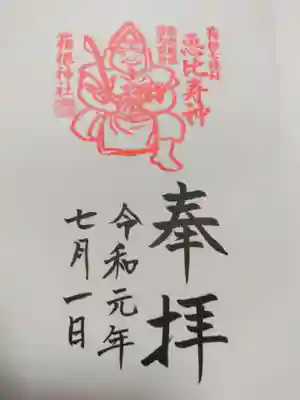 恵比寿神
箱根神社
奉拝
令和元年
七月一日